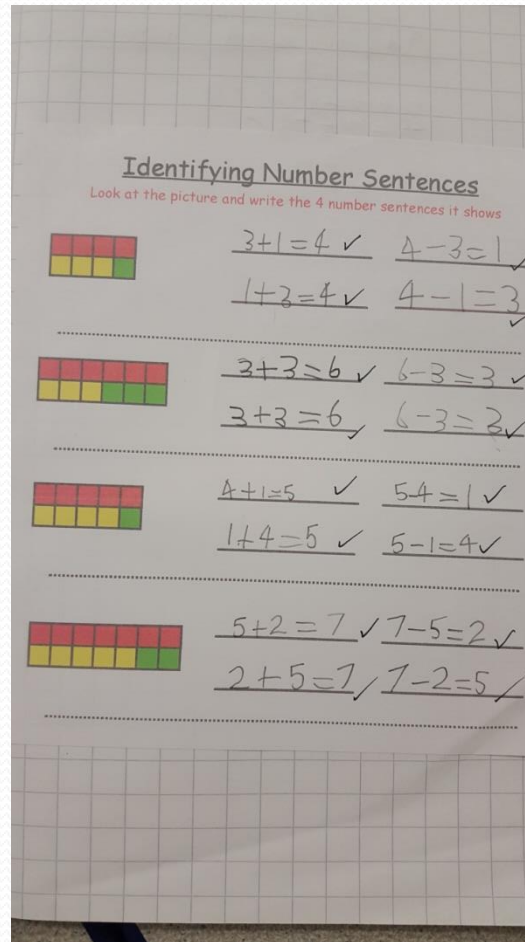 Identifying Number Sentences
Look at the picture and write the 4 number sentences it shows
3+1=4 ✓ 4-3=1 ✓
1+3=4 ✓ 4-1=3 ✓
3+3=6 ✓ 6-3=3 ✓
3+3=6 ✓ 6-3=3 ✓
4+1=5 ✓ 5-4=1 ✓
1+4=5 ✓ 5-1=4 ✓
5+2=7 ✓ 7-5=2 ✓
2+5=7 ✓ 7-2=5 ✓